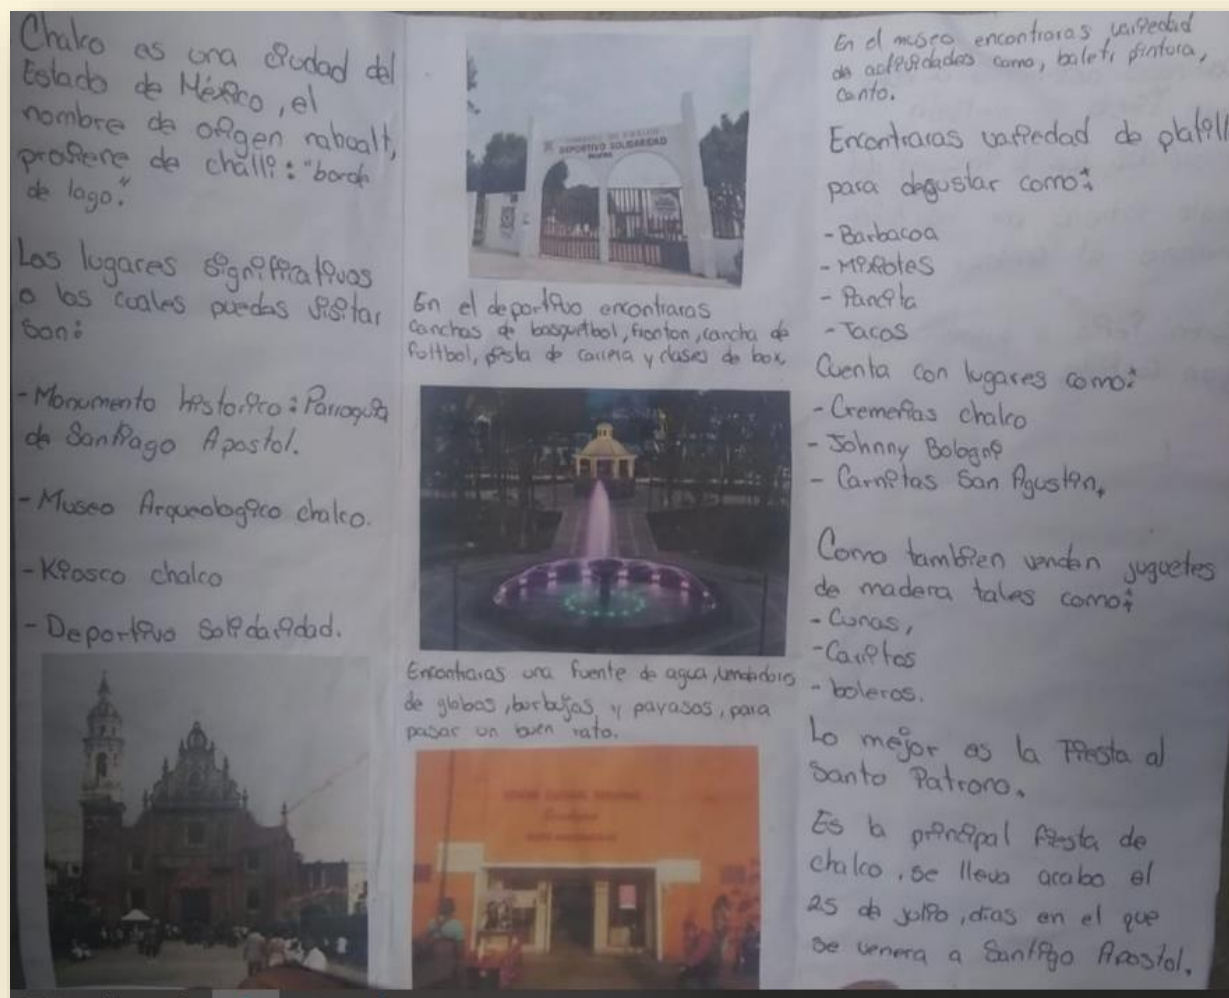 Chalco es una ciudad del
Estado de México, el
nombre de origen naboalt,
profiene de challi: "borde
de lago."
Los lugares significativos
o los cuales puedes visitar
son:
- Monumento historico: Parroquia
de Santiago Apostol.
- Museo Arqueologico chalco.
- Kiosco chalco
- Deportivo Solidaridad.
DEPORTIVO SOLIDARIDAD
En el deportivo encontraras
canchas de basquetbol, fronton, cancha de
futtbol, pista de carrera y clases de box.
Encontraras una fuente de agua, vendedores
de globos, burbujas y payasos, para
pasar un buen rato.
En el museo encontraras variedad
de actividades como, balet, pintura,
canto.
Encontraras variedad de platill
para degustar como:
- Barbacoa
- Mixiotes
- Pancita
- Tacos
Cuenta con lugares como:
- Cremerias chalco
- Johnny Bologni
- Carnitas San Agustin.
Como tambien venden juguetes
de madera tales como:
- Cunas,
- Carritos
- boleros.
Lo mejor es la Fiesta al
Santo Patrono.
Es la principal fiesta de
chalco, se lleva acabo el
25 de julio, dias en el que
se venera a Santigo Apostol.